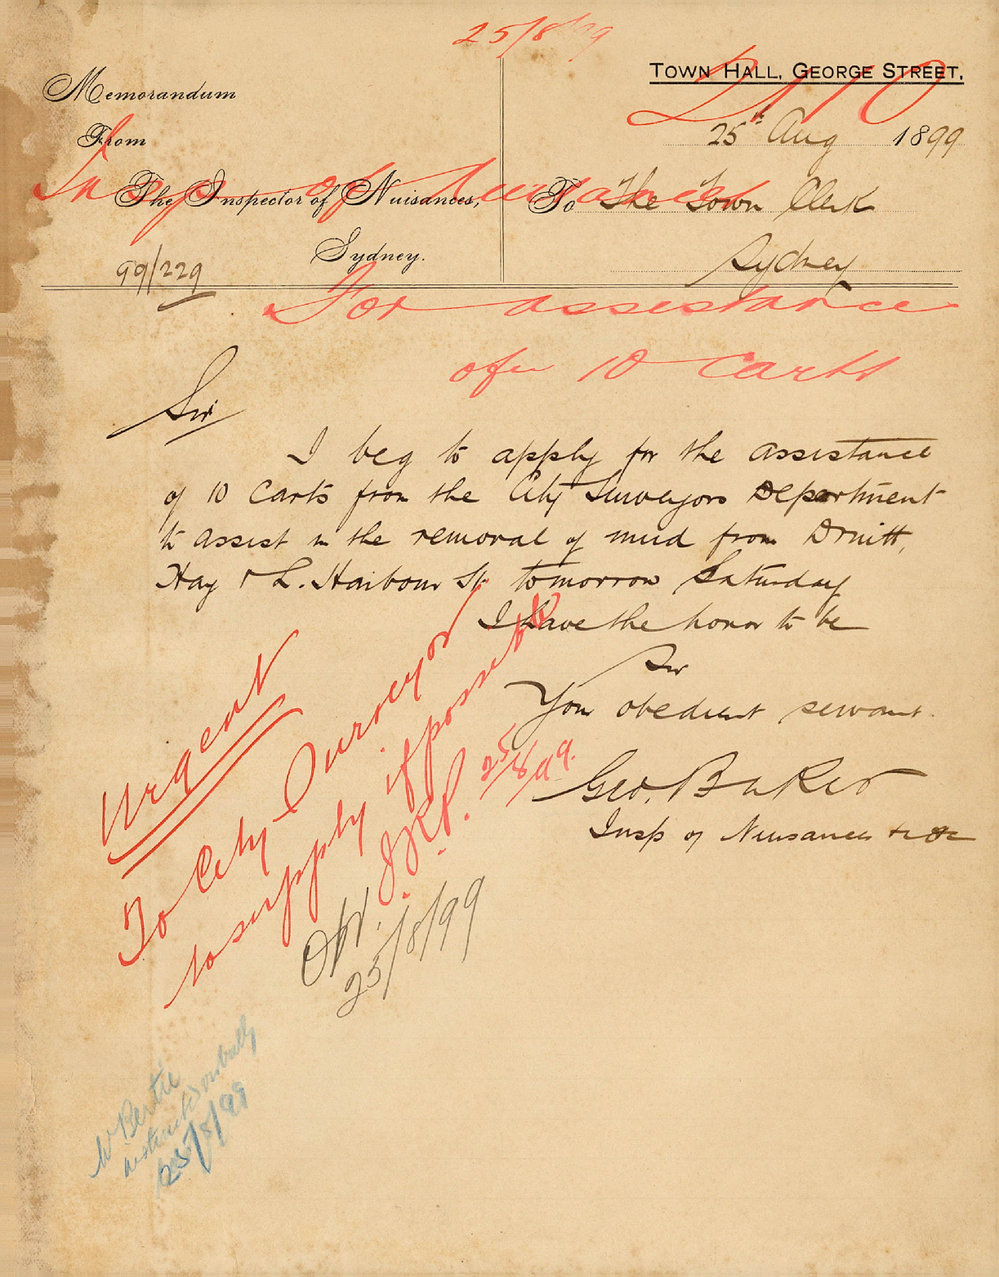 25/8/99
TOWN HALL, GEORGE STREET,
2110
Memorandum
25th Aug 1899
From
Insp of Nuisances
The Inspector of Nuisances,
To The Town Clerk
Sydney.
Sydney
99/229
For assistance
of 10 Carts
Sir
I beg to apply for the assistance
of 10 Carts from the City Surveyors Department
to assist in the removal of mud from Druitt,
Hay & L. Harbour St tomorrow Saturday
I have the honor to be
Sir
Your obedient servant.
Geo. Baker
Insp of Nuisances
Urgent
To City Surveyor
to supply if possible
25/8/99.
25/8/99
W Bertie
instructed verbally
25/8/99